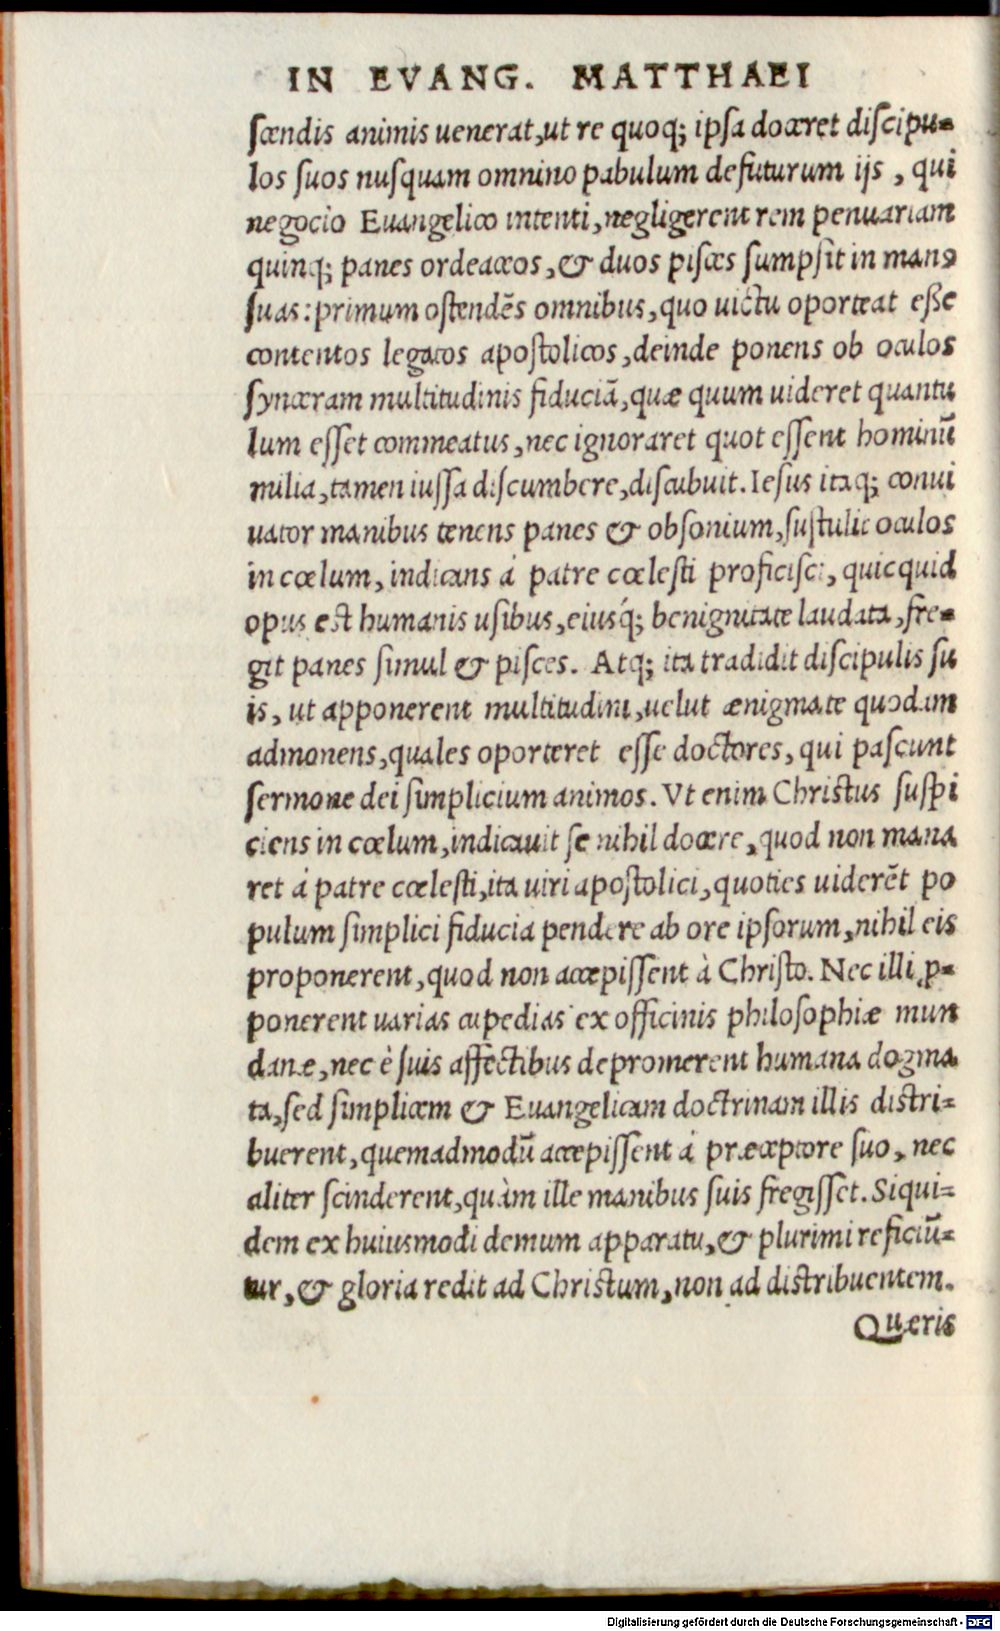 IN EVANG. MATTHAEI
scendis animis uenerat, ut re quoq; ipsa doceret discipu-
los suos nusquam omnino pabulum defuturum ijs, qui
negocio Euangelico intenti, negligerent rem penuariam
quinq; panes ordeaceos, & duos pisces sumpsit in manꝰ
suas: primum ostendẽs omnibus, quo uictu oporteat esse
contentos legatos apostolicos, deinde ponens ob oculos
synceram multitudinis fiduciã, quæ quum uideret quantu
lum esset commeatus, nec ignoraret quot essent hominũ
milia, tamen iussa discumbere, discubuit. Iesus itaq; conui
uator manibus tenens panes & obsonium, sustulit oculos
in cœlum, indicans á patre cœlesti proficisci, quicquid
opus est humanis usibus, eiusq́; benignitate laudata, fre-
git panes simul & pisces. Atq; ita tradidit discipulis su
is, ut apponerent multitudini, uelut ænigmate quodam
admonens, quales oporteret esse doctores, qui pascunt
sermone dei simplicium animos. Vt enim Christus suspi
ciens in cœlum, indicauit se nihil docere, quod non mana
ret á patre cœlesti, ita uiri apostolici, quoties uiderẽt po
pulum simplici fiducia pendere ab ore ipsorum, nihil eis
proponerent, quod non accepissent à Christo. Nec illi ꝓ-
ponerent uarias cupedias ex officinis philosophiæ mun
danæ, nec è suis affectibus depromerent humana dogma
ta, sed simplicem & Euangelicam doctrinam illis distri-
buerent, quemadmodũ accepissent á præceptore suo, nec
aliter scinderent, quàm ille manibus suis fregisset. Siqui-
dem ex huiusmodi demum apparatu, & plurimi reficiũ-
tur, & gloria redit ad Christum, non ad distribuentem.
Quæris
Digitalisierung gefördert durch die Deutsche Forschungsgemeinschaft - DFG